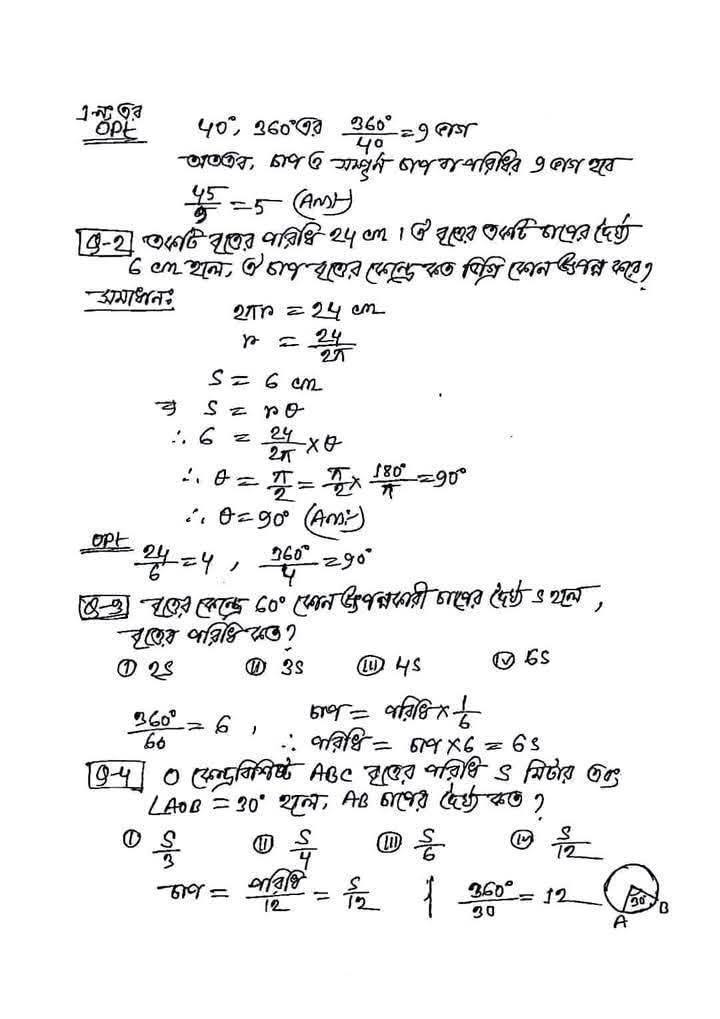 OPt
40°, 360°এর 360°/40 = 9 ভাগ
অতএব, চাপ ও সম্পূর্ণ চাপ বা পরিধির 9 ভাগ হবে
45/9 = 5 (Ans)
Q-2 একটি বৃত্তের পরিধি 24 cm । ঐ বৃত্তের একটি চাপের দৈর্ঘ্য
6 cm হলে, ঐ চাপ বৃত্তের কেন্দ্রে কত ডিগ্রি কোন উৎপন্ন করে?
সমাধান:
2πr = 24 cm
r = 24/2π
S = 6 cm
⇒ S = rθ
∴ 6 = 24/2π × θ
∴ θ = π/2 = π/2 × 180°/π = 90°
∴ θ = 90° (Ans:)
OPt 24/6 = 4 , 360°/4 = 90°
Q-3 বৃত্তের কেন্দ্রে 60° কোন উৎপন্নকারী চাপের দৈর্ঘ্য S হলে,
বৃত্তের পরিধি কত?
i 2S ii 3S iii 4S iv 6S
360°/60 = 6 , চাপ = পরিধি × 1/6
∴ পরিধি = চাপ × 6 = 6S
Q-4 O কেন্দ্রবিশিষ্ট ABC বৃত্তের পরিধি S মিটার এবং
∠AOB = 30° হলে, AB চাপের দৈর্ঘ্য কত?
i S/3 ii S/4 iii S/6 iv S/12
চাপ = পরিধি/12 = S/12 | 360°/30 = 12 30° A B